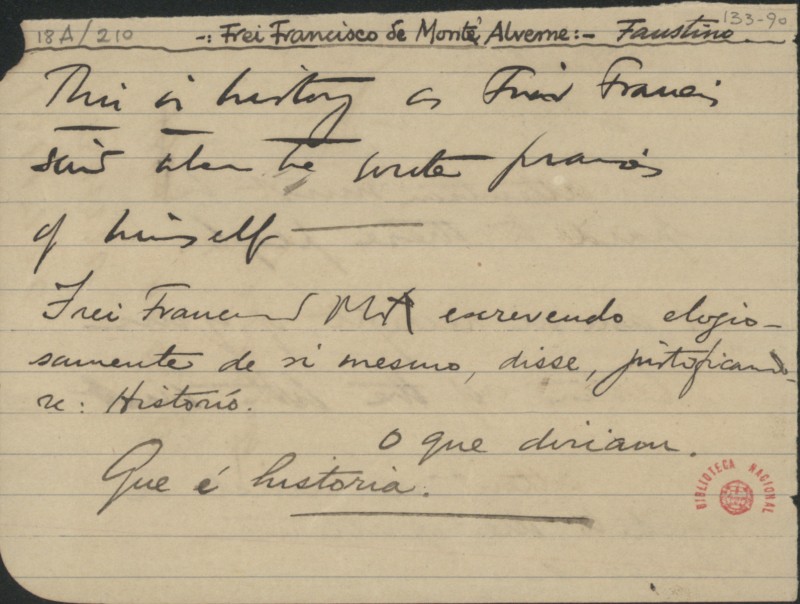 18A/210
133-90
-: Frei Francisco de Monte Alverne:- Faustino.
This is history as Friar Francis
said when he wrote praises
of himself
Frei Francisco d MtA escrevendo elogio-
samente de si mesmo, disse, justificando-
se: Historió.
O que diriam.
Que é historia.
BIBLIOTECA NACIONAL